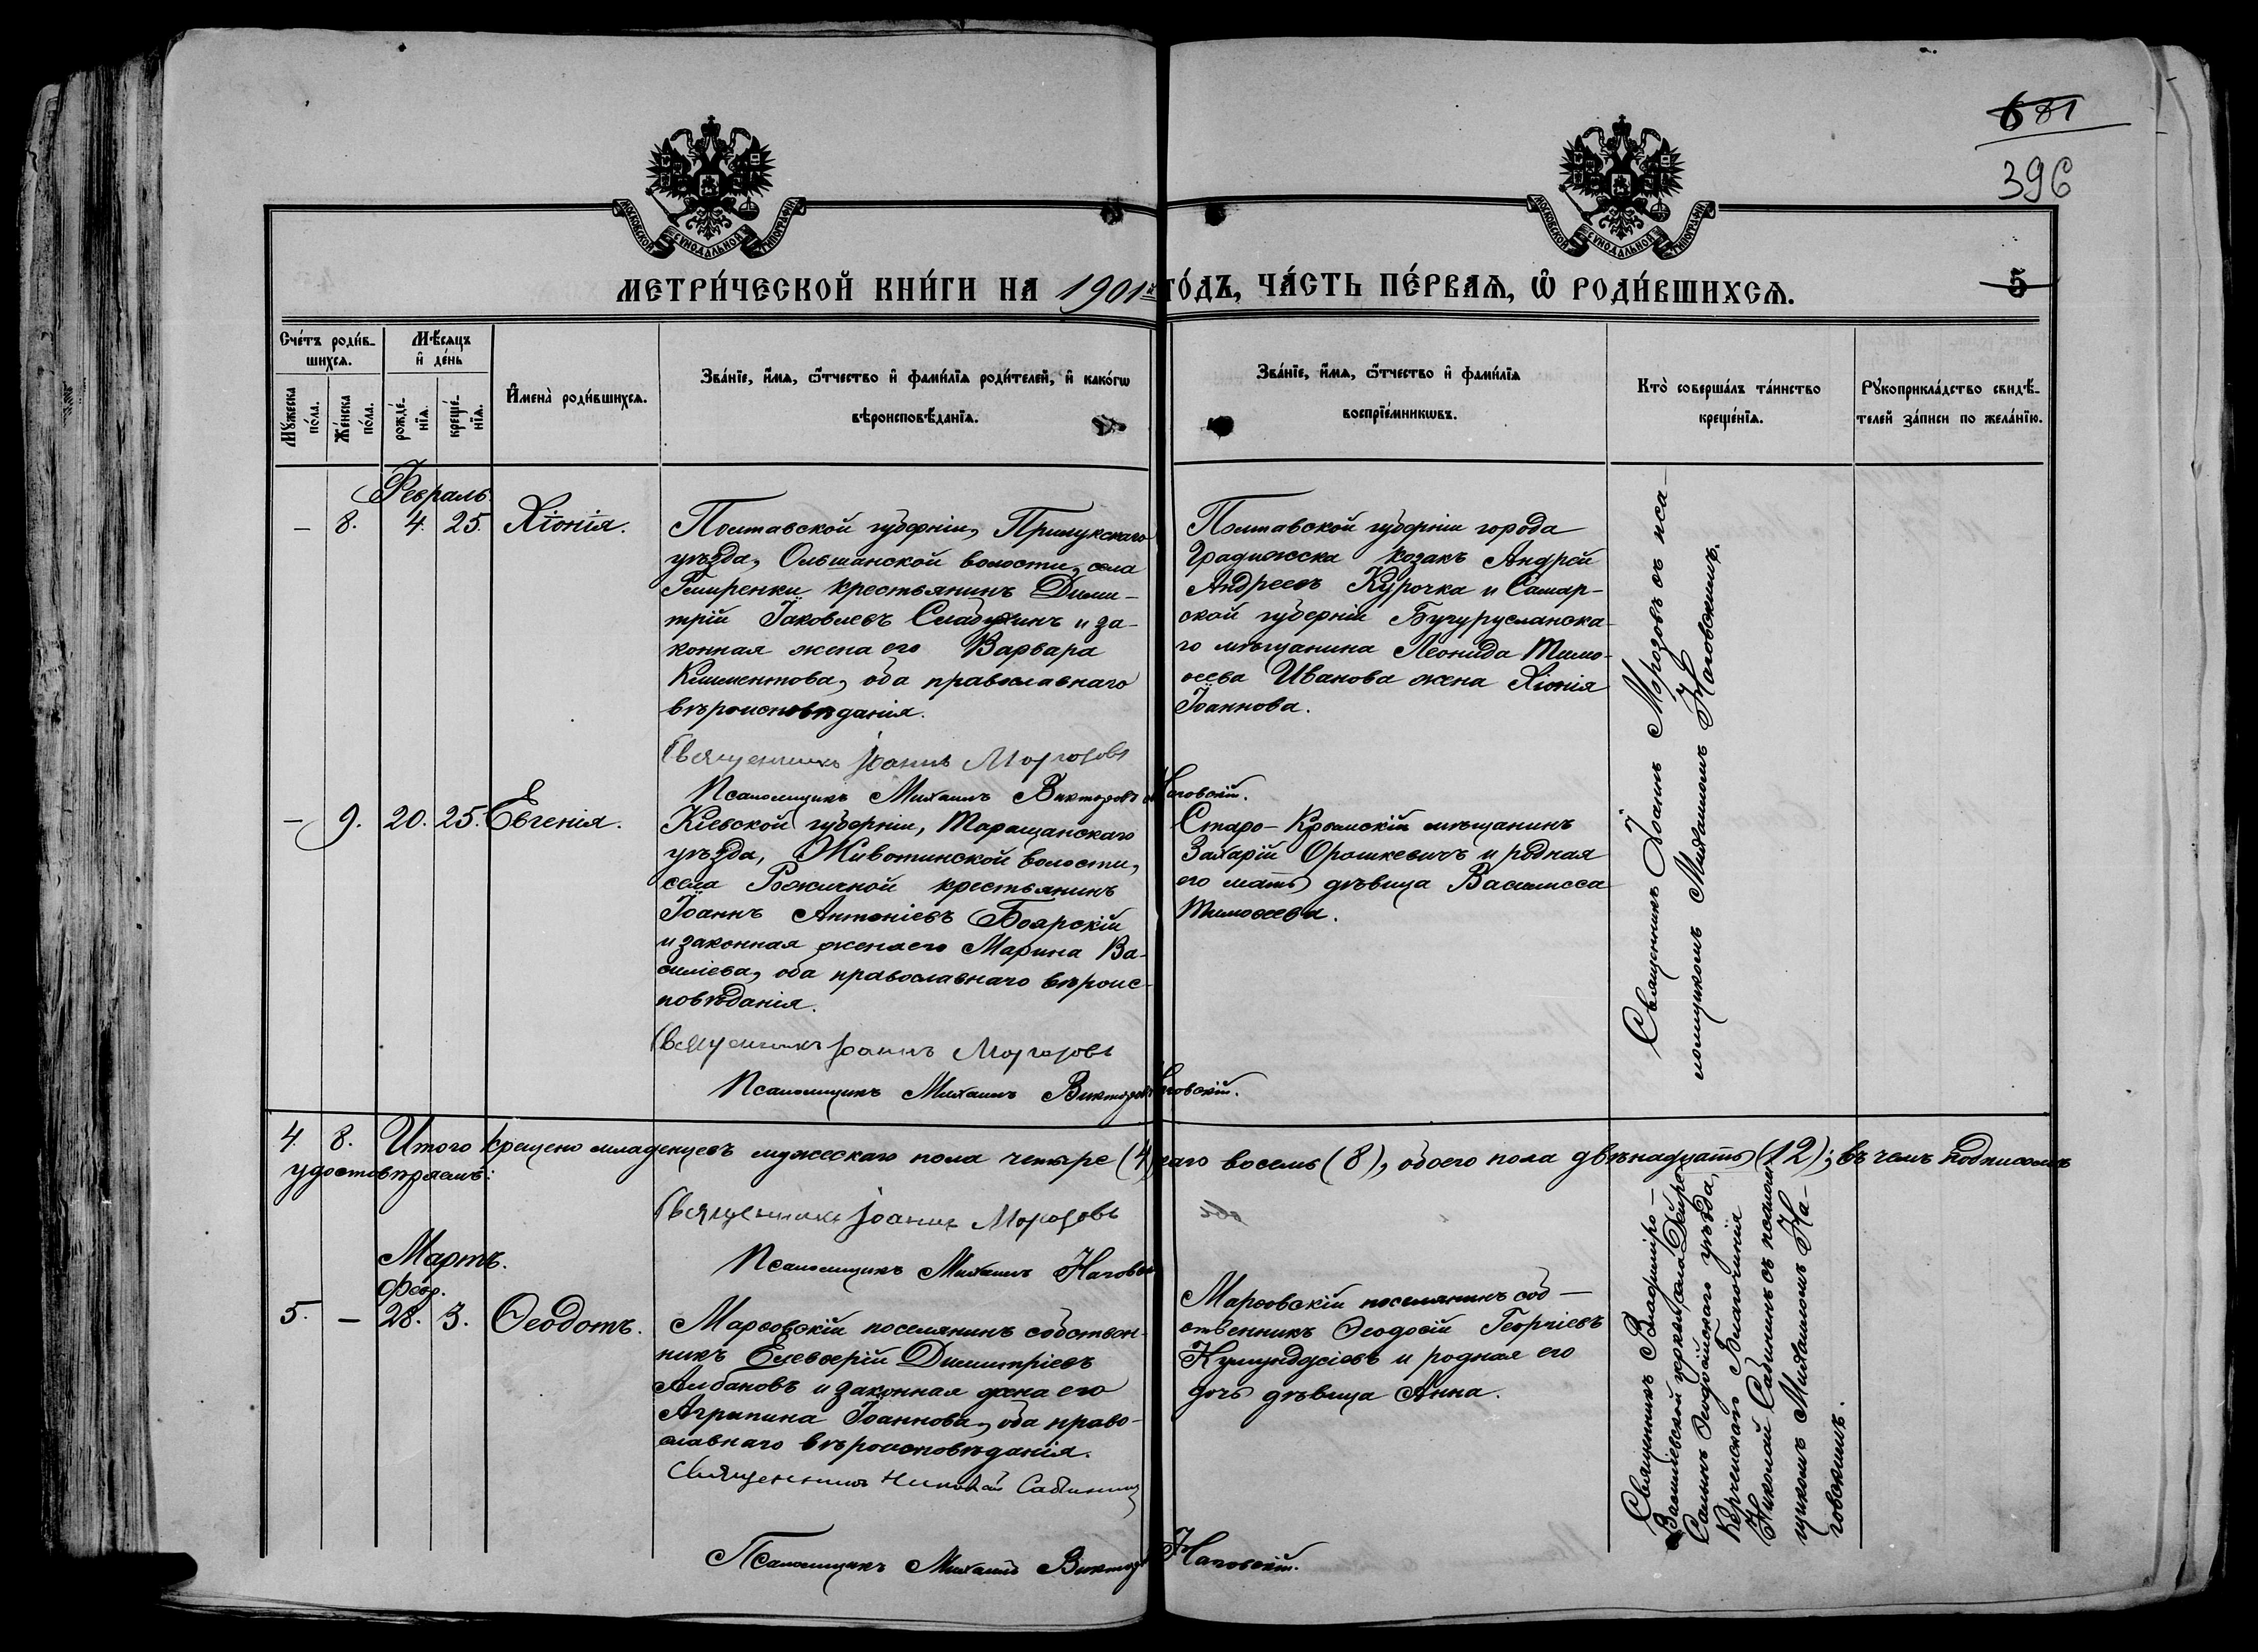 681
396
МОСКОВСКОЙ СѴНОДАЛЬНОЙ ТИПОГРАФІИ
МОСКОВСКОЙ СѴНОДАЛЬНОЙ ТИПОГРАФІИ
МЕТРИ́ЧЕСКОЙ КНИ́ГИ НА 1901й ГО́ДЪ, ЧА́СТЬ ПЕ́РВАѦ, Ѡ҆ РОДИ́ВШИХСѦ.
5
Сче́тъ роди́в-
шихсѧ.
Мѣ́сѧцъ
и҆ де́нь
Мꙋ́жеска
по́ла.
Же́нска
по́ла.
рожде́-
нїѧ.
креще́-
нїѧ.
И҆мена̀ роди́вшихсѧ.
Зва́нїе, и҆́мѧ, ѻ҆́тчество и҆ фами́лїѧ роди́телей, и҆ како́гѡ
вѣроисповѣ́данїѧ.
Зва́нїе, и҆́мѧ, ѻ҆́тчество и҆ фами́лїѧ
воспрїе́мникѡвъ.
Кто̀ соверша́лъ та́инство
креще́нїѧ.
Рꙋкоприкла́дство свидѣ́-
телей за́писи по жела́нїю.
Февраль.
— 8. 4. 25. Хіонія.
Полтавской губерніи, Прилукскаго
уѣзда, Ольшанской волости, села
крестьянинъ Дими-
трій Іаковлевъ и за-
конная жена его Варвара
Климентова, оба православнаго
вѣроисповѣданія.
Священникъ Іоаннъ Морозовъ
Псаломщикъ Михаилъ Викторовъ Наговскій.
Полтавской губерніи города
Градижска козакъ Андрей
Андреевъ Курочка и Самар-
ской губерніи Бугурусланска-
го мѣщанина Леонида Тимо-
ѳеева Иванова жена Хіонія
Іоаннова.
Священникъ Іоаннъ Морозовъ съ пса-
ломщикомъ Михаиломъ Наговскимъ.
— 9. 20. 25. Евгенія.
Кіевской губерніи, Таращанскаго
уѣзда, Животинской волости,
села Рожичной крестьянинъ
Іоаннъ Антоніевъ Боярскій
и законная жена его Марина Ва-
силіева, оба православнаго вѣроис-
повѣданія.
Священникъ Іоаннъ Морозовъ
Псаломщикъ Михаилъ Викторовъ Наговскій.
Старо-Крымскій мѣщанинъ
Захарій Орошкевичъ и родная
его мать дѣвица Василисса
Тимоѳеева.
4. 8. Итого крещено младенцевъ мужескаго пола четыре (4) каго восемь (8), обоего пола двѣнадцать (12); въ чемъ подписомъ
удостовѣряемъ:
Священникъ Іоаннъ Морозовъ
Псаломщикъ Михаилъ Наговскій
Мартъ.
Февр.
5. — 28. 3. Ѳеодотъ.
Марѳовскій поселянинъ собствен-
никъ Елевѳерій Димитріевъ
Албановъ и законная жена его
Агрипина Іоаннова, оба право-
славнаго вѣроисповѣданія.
Священникъ Николай Сабининъ
Псаломщикъ Михаилъ Викторовъ Наговскій.
Марѳовскій поселянинъ соб-
ственникъ Ѳеодосій Георгіевъ
и родная его
дочь дѣвица Анна.
Священникъ Владиміро-
Василіевской церкви, села
Ѳеодосійскаго уѣзда,
Керченскаго Благочинія
Николай Сабининъ съ псалом-
щикомъ Михаиломъ На-
говскимъ.